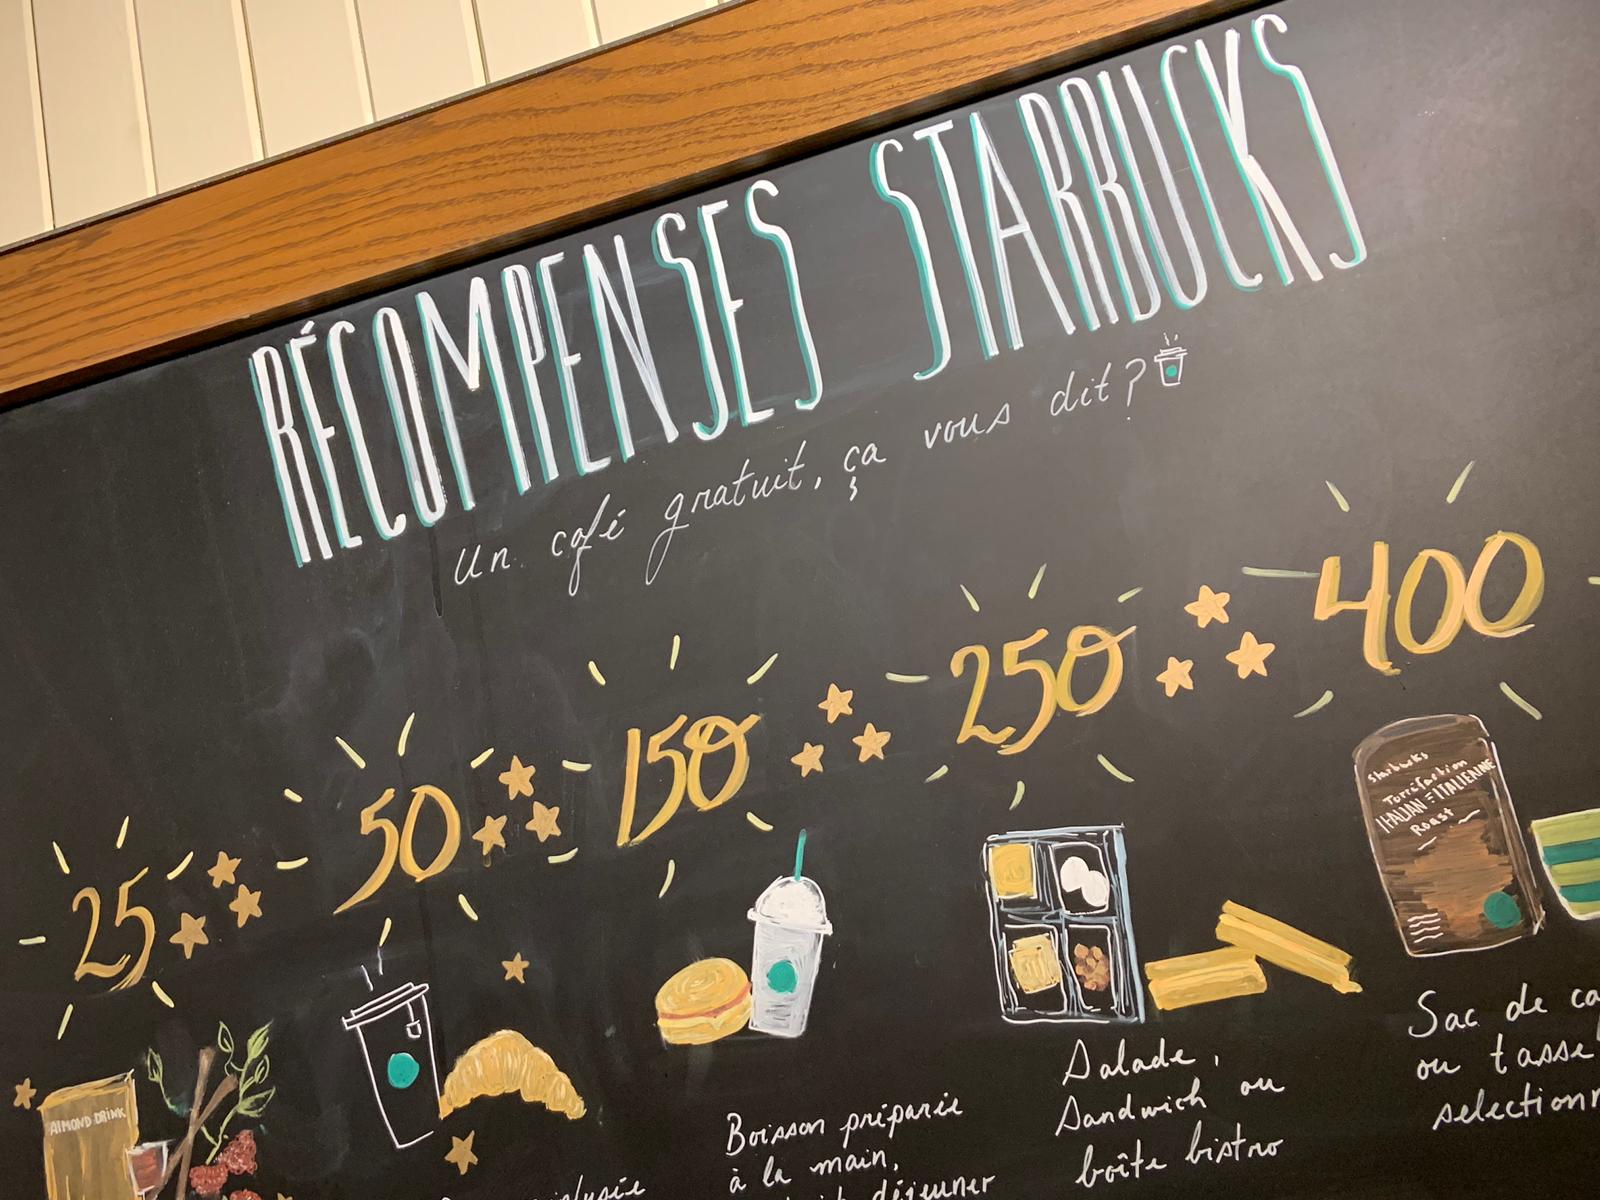 RÉCOMPENSES STARBUCKS
Un café gratuit, ça vous dit?
25
50
150
250
400
ALMOND DRINK
Starbucks
Torréfaction
ITALIAN - ITALIENNE
Roast
Boisson préparée
à la main,
déjeuner
Salade,
Sandwich ou
boîte bistro
Sac de
ou tasse